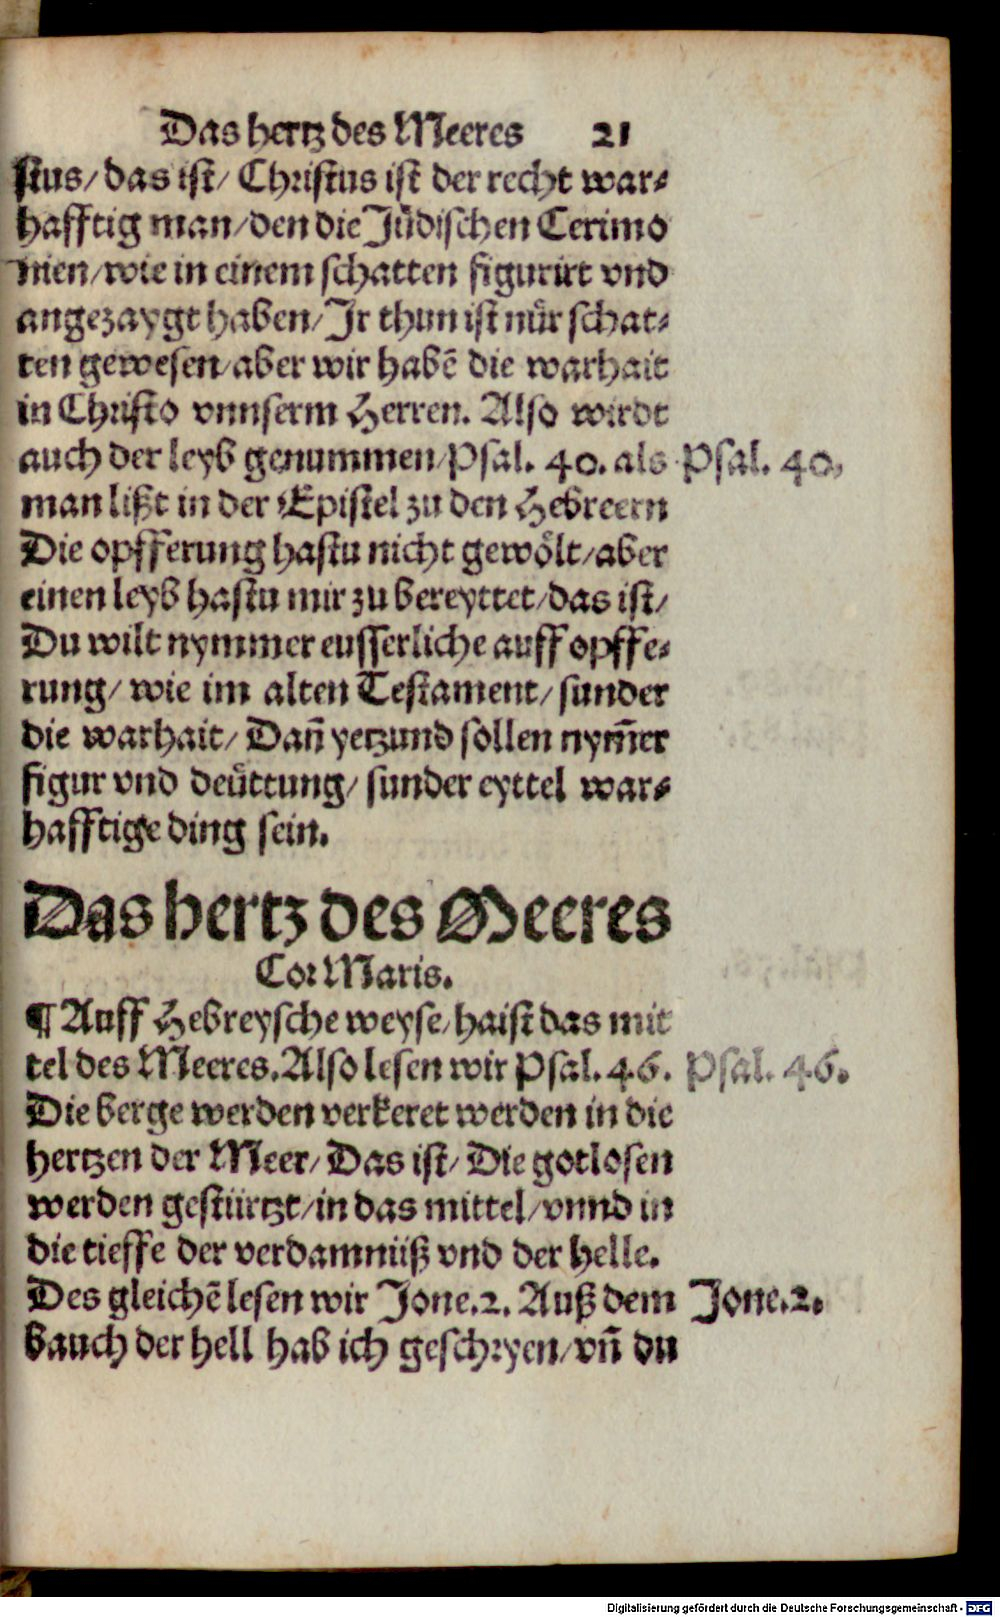 Das hertz des Meeres 21
stus/ das ist/ Christus ist der recht war⸗
hafftig man/ den die Jüdischen Cerimo
nien/ wie in einem schatten figurirt vnd
angezaygt haben/ Jr thun ist nür schat⸗
ten gewesen/ aber wir habē die warhait
in Christo vnnserm Herren. Also wirdt
auch der leyb genummen/ Psal. 40. als Psal. 40.
man lißt in der Epistel zu den Hebreern
Die opfferung hastu nicht gewölt/ aber
einen leyb hastu mir zu bereyttet/ das ist/
Du wilt nymmer eusserliche auff opffe⸗
rung/ wie im alten Testament/ sunder
die warhait/ Dañ yetzund sollen nym̄er
figur vnd deüttung/ sunder eyttel war⸗
hafftige ding sein.
Das hertz des Meeres
Cor Maris.
¶ Auff Hebreysche weyse/ haist das mit
tel des Meeres. Also lesen wir Psal. 46. Psal. 46.
Die berge werden verkeret werden in die
hertzen der Meer/ Das ist/ Die gotlosen
werden gestürtzt/ in das mittel/ vnnd in
die tieffe der verdamnüß vnd der helle.
Des gleichē lesen wir Jone. 2. Auß dem Jone. 2.
bauch der hell hab ich geschryen/ vñ du
Digitalisierung gefördert durch die Deutsche Forschungsgemeinschaft - DFG